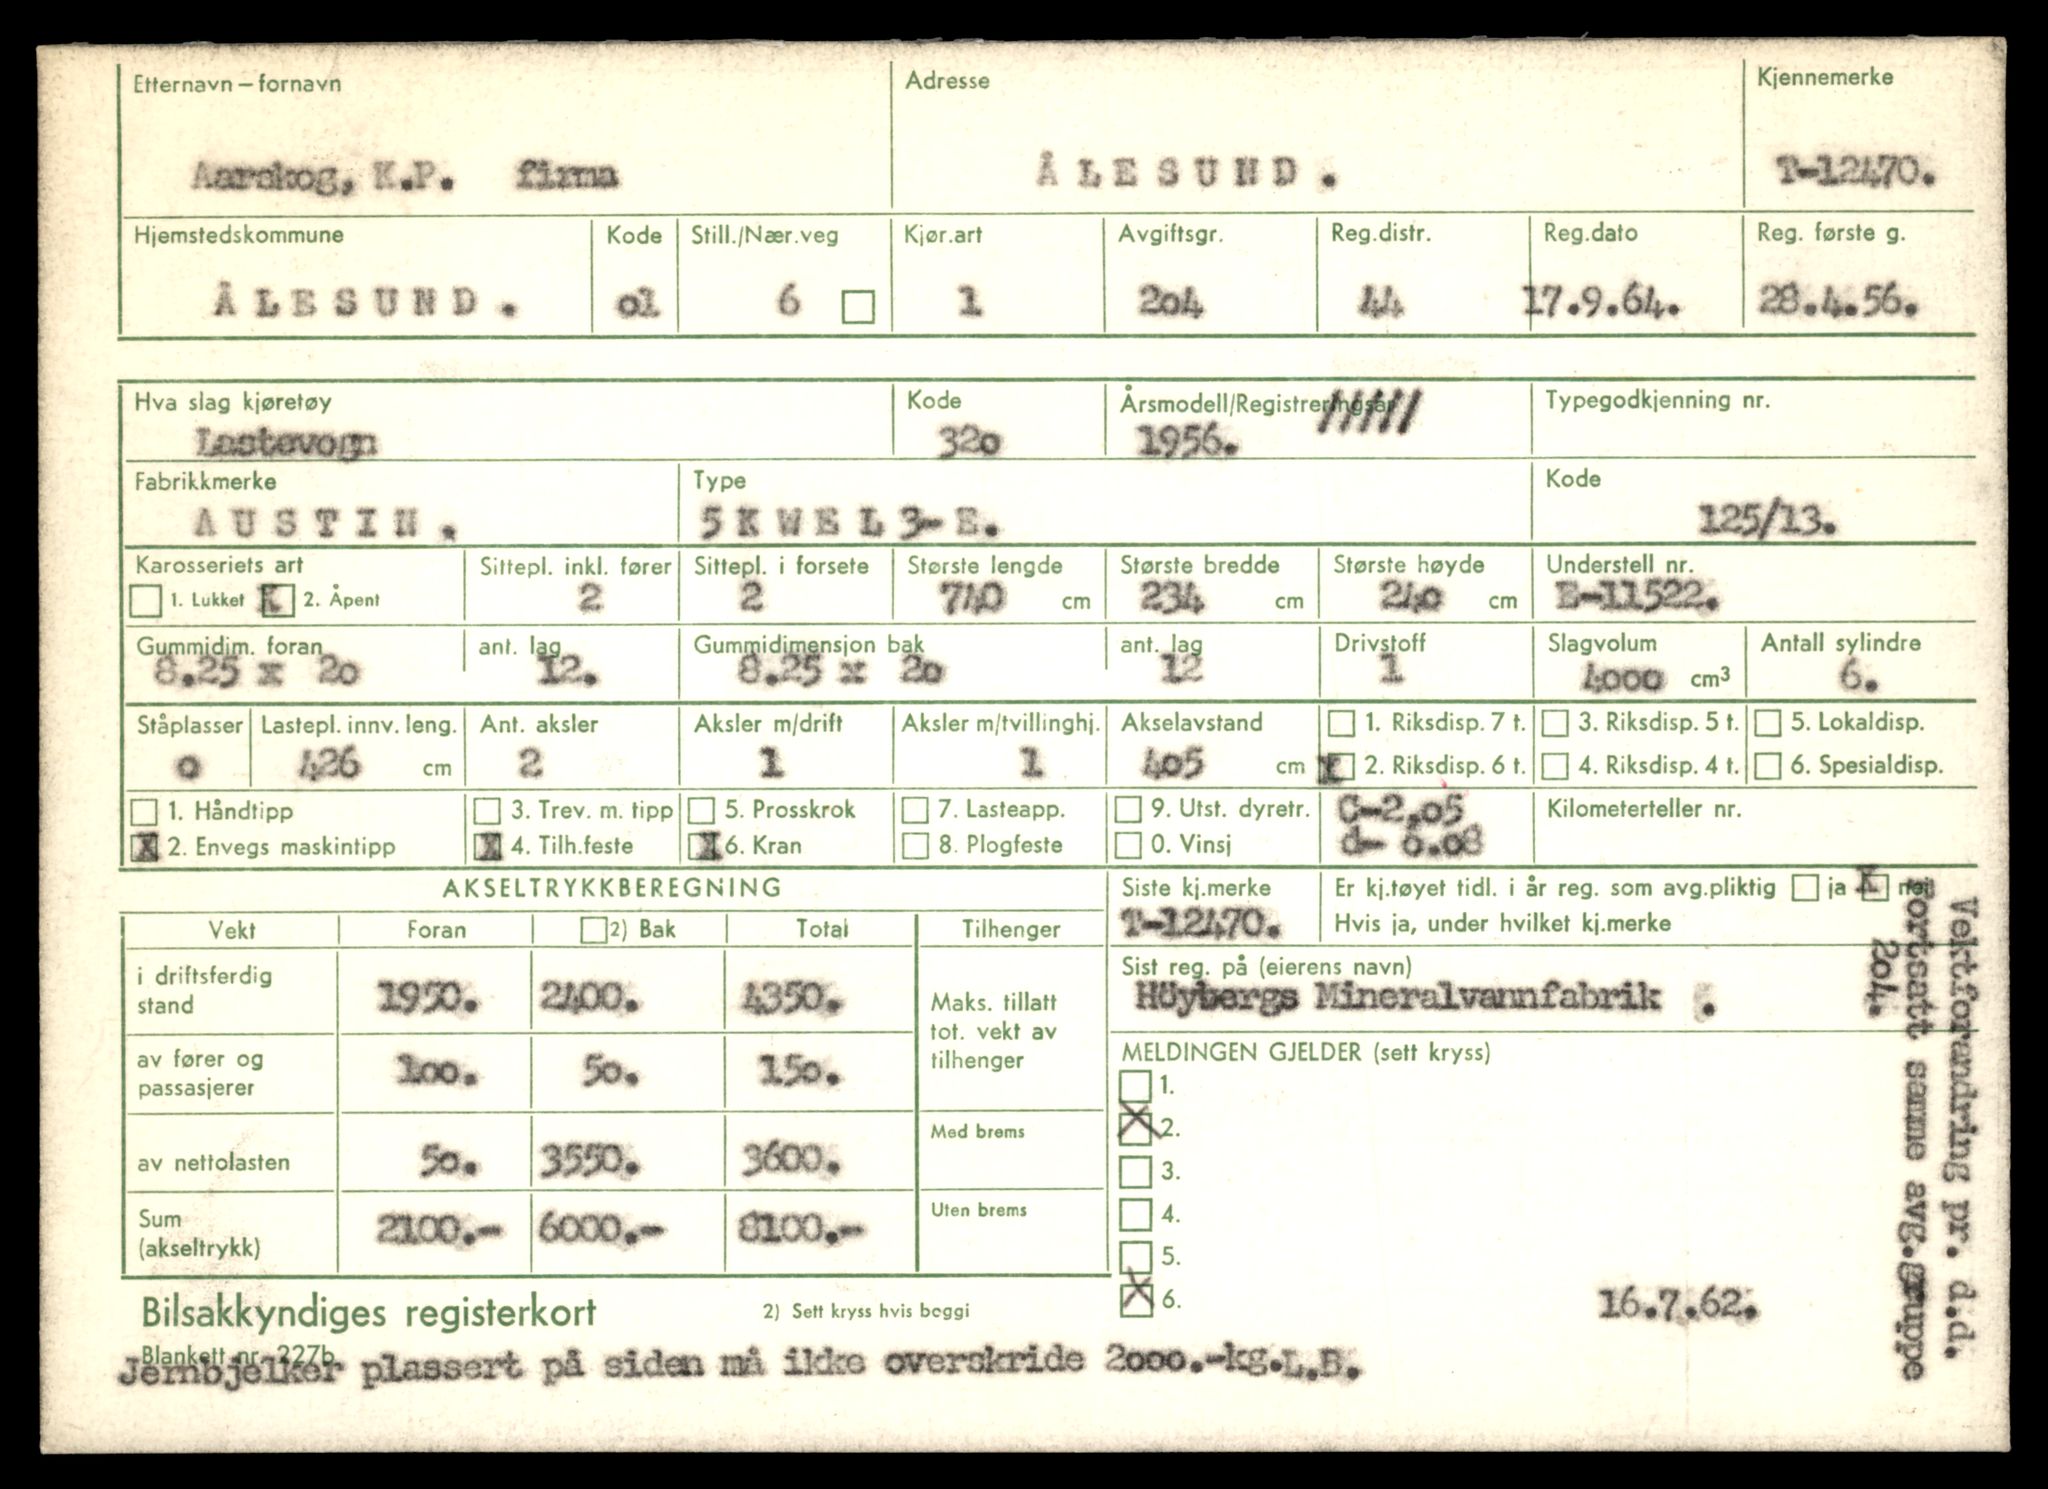 Etternavn – fornavn Adresse Kjennemerke
Aarskog, K.P. firma ÅLESUND. T-12470.
Hjemstedskommune Kode Still./Nær.veg Kjør.art Avgiftsgr. Reg.distr. Reg.dato Reg. første g.
ÅLESUND. 01 6 1 204 44 17.9.64. 28.4.56.
Hva slag kjøretøy Kode Årsmodell/Registreringsår ///// Typegodkjenning nr.
Lastevogn 320 1956.
Fabrikkmerke Type Kode
AUSTIN. 5KWEL3-E. 125/13.
Karosseriets art Sittepl. inkl. fører Sittepl. i forsete Største lengde Største bredde Største høyde Understell nr.
1. Lukket X 2. Åpent 2 2 740 cm 234 cm 240 cm E-11522.
Gummidim. foran ant. lag Gummidimensjon bak ant. lag Drivstoff Slagvolum Antall sylindre
8.25 x 20 12. 8.25 x 20 12 1 4000 cm3 6.
Ståplasser Lastepl. innv. leng. Ant. aksler Aksler m/drift Aksler m/tvillinghj. Akselavstand 1. Riksdisp. 7 t. 3. Riksdisp. 5 t. 5. Lokaldisp.
0 426 cm 2 1 1 405 cm X 2. Riksdisp. 6 t. 4. Riksdisp. 4 t. 6. Spesialdisp.
1. Håndtipp 3. Trev. m. tipp 5. Prosskrok 7. Lasteapp. 9. Utst. dyretr. C-2.05 Kilometerteller nr.
X 2. Envegs maskintipp X 4. Tilh.feste X 6. Kran 8. Plogfeste 0. Vinsj d- 0.08
AKSELTRYKKBEREGNING Siste kj.merke Er kj.tøyet tidl. i år reg. som avg.pliktig ja X nei
T-12470. Hvis ja, under hvilket kj.merke
Vekt Foran 2) Bak Total Tilhenger
Sist reg. på (eierens navn)
i driftsferdig stand 1950. 2400. 4350. Maks. tillatt tot. vekt av tilhenger
Höybergs Mineralvannfabrik .
av fører og passasjerer 100. 50. 150.
MELDINGEN GJELDER (sett kryss)
1.
X 2.
3.
4.
5.
X 6.
av nettolasten 50. 3550. 3600. Med brems
Sum (akseltrykk) 2100.- 6000.- 8100.- Uten brems
16.7.62.
Vektforandring pr. d.d.
Fortsatt samme avg.gruppe
204.
Bilsakkyndiges registerkort 2) Sett kryss hvis boggi
Blankett nr. 227b
Jernbjelker plassert på siden må ikke overskride 2000.-kg.L.B.